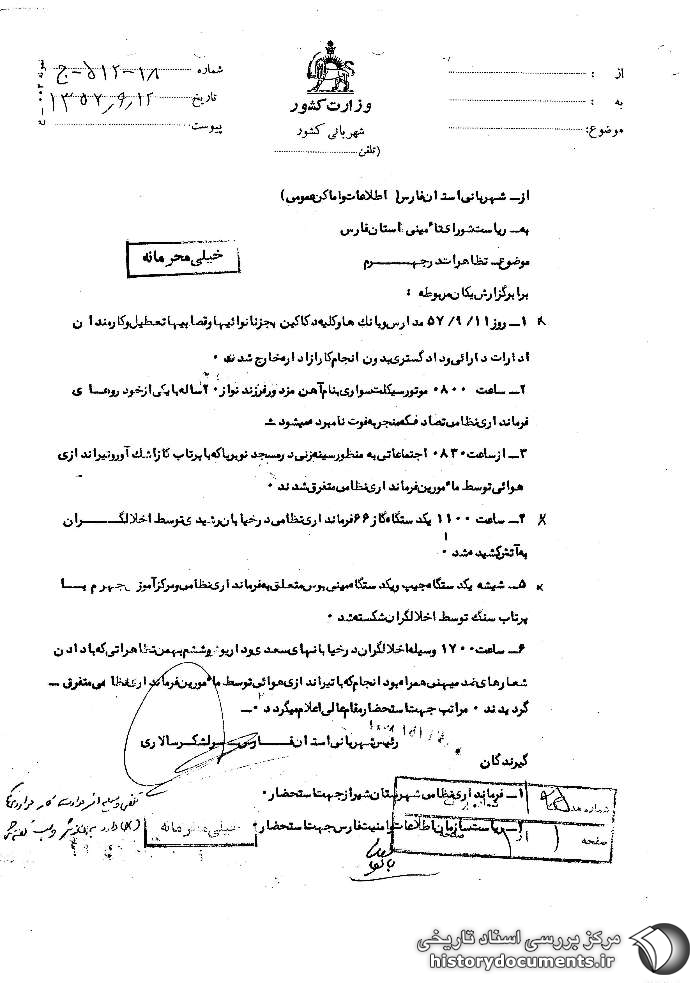 از :
به :
موضوع:
وزارت کشور
شهربانی کشور
(تلفن
شماره ۱۸-۵۱۲-ج
تاریخ ۱۳۵۷٫۹٫۱۲
پیوست
از ـ شهربانی استان فارس (اطلاعات و اماکن عمومی)
به ـ ریاست شورای تأمینی استان فارس
موضوع ـ تظاهرات در جهرم
خیلی محرمانه
برابر گزارش یکان مربوطه :
۱ـ روز ۵۷/۹/۱۱ مدارس و بانک ها و کلیه دکاکین بجز نانوائیها و قصابیها تعطیل و کارمندان
ادارات دارائی و دادگستری بدون انجام کار از اداره خارج شدند ۰
۲ـ ساعت ۰۸۰۰ موتور سیکلت سواری بنام آهن مزد ور فرزند نواز ۲۰ ساله با یکی از خود روهای
فرمانداری نظامی تصادف که منجر به فوت نامبرده میشود
۳ـ از ساعت ۰۸۳۰ اجتماعاتی به منظور سینه زنی در مسجد نو برپا که با پرتاب گاز اشک آور و تیراندازی
هوائی توسط مأمورین فرمانداری نظامی متفرق شدند ۰
۴ـ ساعت ۱۱۰۰ یکدستگاه گاز ۶۶ فرمانداری نظامی در خیابان رشیدی توسط اخلالگران
به آتش کشیده شد ۰
۵ـ شیشه یکدستگاه جیپ و یکدستگاه مینی بوس متعلق به فرمانداری نظامی و مرکز آموز جهرم با
پرتاب سنگ توسط اخلالگران شکسته شد ۰
۶ـ ساعت ۱۷۰۰ وسیله اخلالگران در خیابانهای سعدی و داریوش و ششم بهمن تظاهراتی که با دادن
شعارهای ضد میهنی همراه بود انجام که با تیراندازی هوائی توسط مأمورین فرمانداری نظامی متفرق ـ
گردیدند ۰ مراتب جهت استحضار مقام عالی اعلام میگردد ۰ـ
رئیس شهربانی استان فارس ـ سرلشکر سالاری
گیرندگان
۱ـ فرمانداری نظامی شهرستان شیراز جهت استحضار ۰
۲ـ ریاست سازمان اطلاعات و امنیت فارس جهت استحضار ۰
خیلی محرمانه
صفحه ۱ از ۱ صفحه
مرکز بررسی اسناد تاریخی
historydocuments.ir